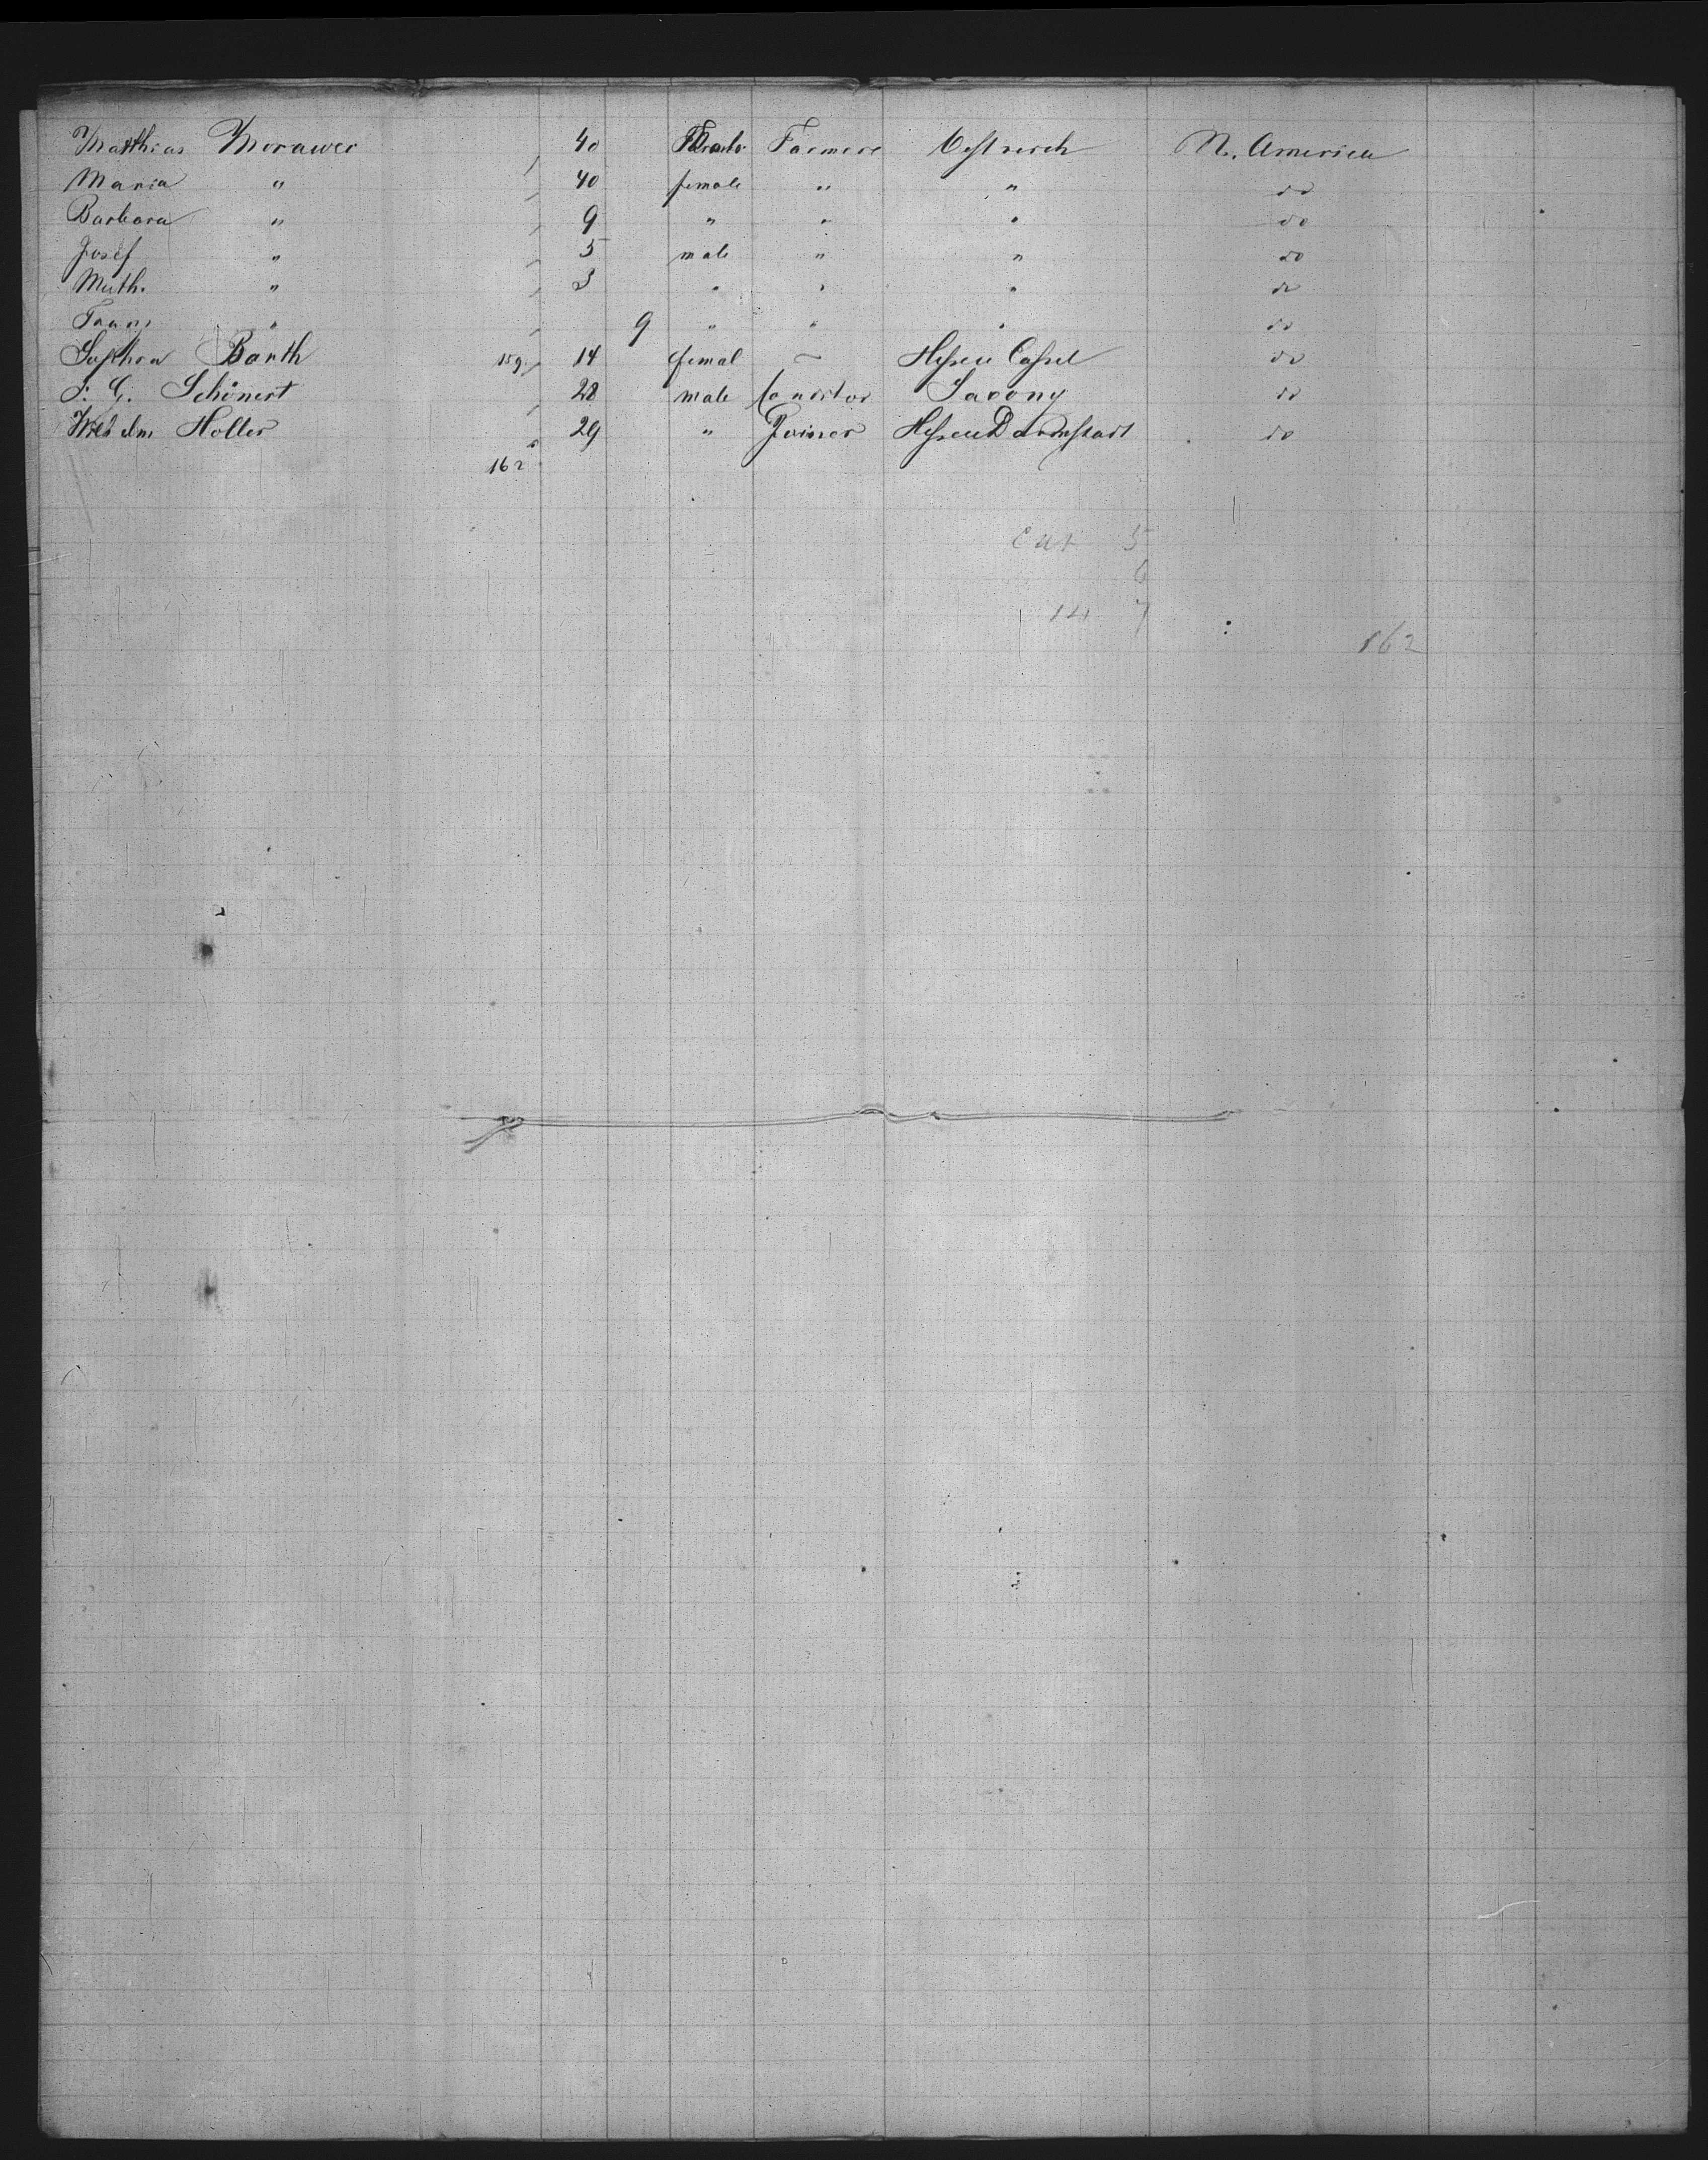 Matthias Morawec 40 Farmer Oestreich N. America
Maria " 40 female " " do
Barbara " 9 " " " do
Josef " 5 male " " do
Math. " 3 " " " do
Franz " 9 " " " do
Barth 159 14 femal ~ Hessen Cassel do
Schönert 28 male Conditor Saxony do
Wilhelm Holler 29 " Joiner Hessen Darmstadt do
162
5
6
14 7
162